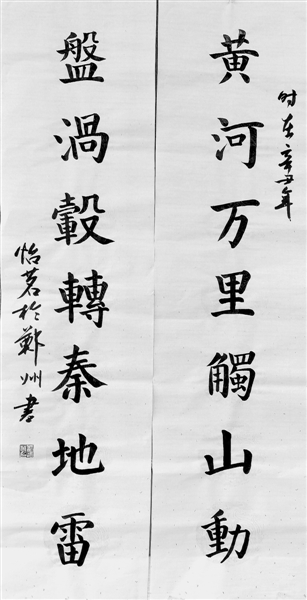 时在辛丑年
黄河万里觸山動
盤渦轂轉秦地雷
怡茗於鄭州書